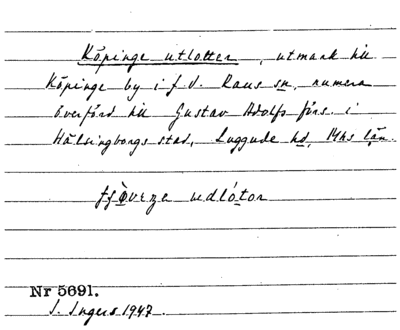 Köpinge utlotter, utmark till
Köpinge by i f.d. Raus sn, numera
överförd till Gustav Adolfs förs. i
Hälsingborgs stad, Luggude hd, Mhs län.
Nr 5691.
I. Ingers 1947.